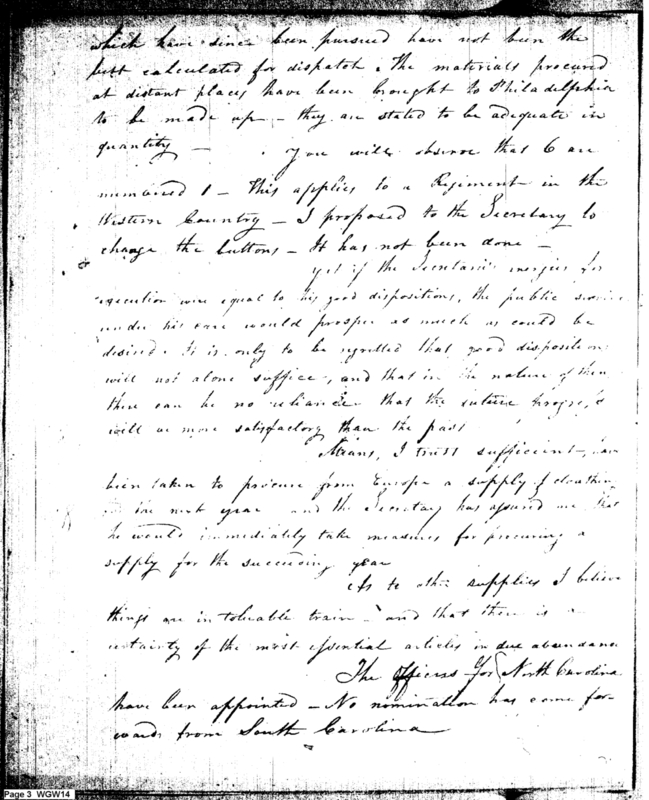 which have since been pursued have not been the
best calculated for dispatch. The materials procured
at distant places have been brought to Philadelphia
to be made up – they are stated to be adequate in
quantity – You will observe that 6 are
numbered 1 – This applies to a Regiment in the
Western Country – I proposed to the Secretary to
change the buttons – It has not been done –
yet if the Secretary's energies for
execution were equal to his good dispositions, the public service
under his care would prosper as much as could be
desired. It is only to be regretted that good dispositions
will not alone suffice, and that in the nature of things
there can be no reliance that the future progress
will be more satisfactory than the past
Means, I trust sufficient, have
been taken to procure from Europe a supply of cloathing
for the next year and the Secretary has assured me that
he would immediately take measures for procuring a
supply for the succeeding year
As to other supplies I believe
things are in tolerable train – and that there is a
certainty of the most essential articles in due abundance
The officers for North Carolina
have been appointed – No nomination has come for-
wards from South Carolina
Page 3 WGW14